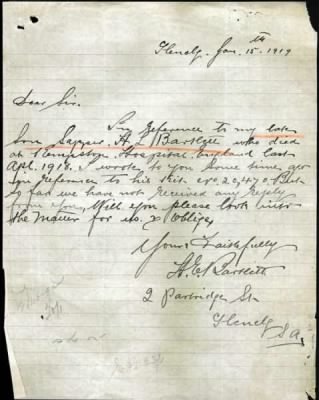 Glenelg Jan. 15th 1919
Dear Sir.
In reference to my late
Son Sapper. H. L. Bartlett who died
at Hospital England last
Apl. 1918. I wrote to you some time ago
in reference to his Kit. No. 20,470 But
so far we have not received any reply
from you, Will you please look into
the matter for us. & Oblige,
Yours Faithfully
H. E. Bartlett
2 Partridge St
Glenelg
S A.